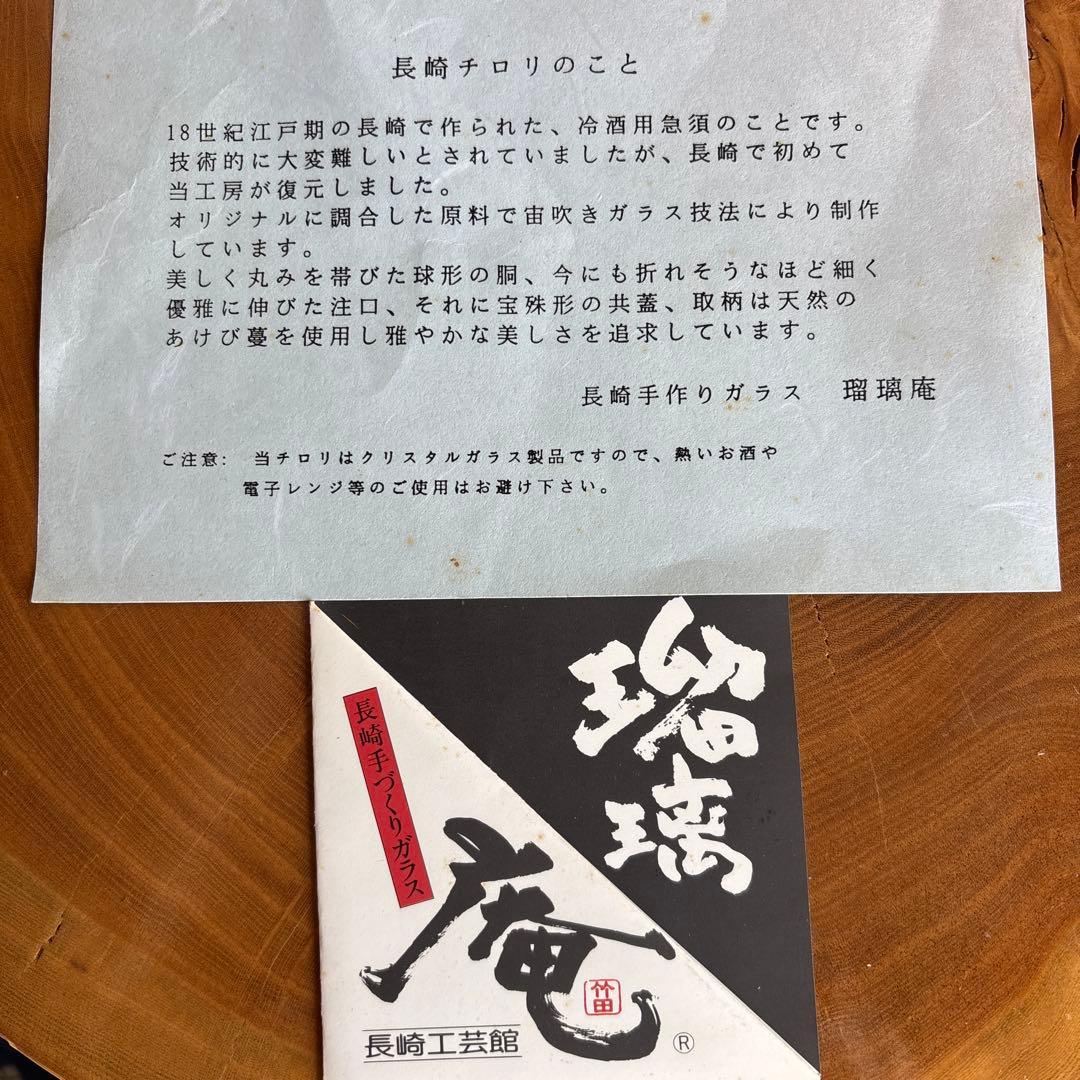 長崎チロリのこと
18世紀江戸期の長崎で作られた、冷酒用急須のことです。
技術的に大変難しいとされていましたが、長崎で初めて
当工房が復元しました。
オリジナルに調合した原料で宙吹きガラス技法により制作
しています。
美しく丸みを帯びた球形の胴、今にも折れそうなほど細く
優雅に伸びた注口、それに宝殊形の共蓋、取柄は天然の
あけび蔓を使用し雅やかな美しさを追求しています。
長崎手作りガラス 瑠璃庵
ご注意: 当チロリはクリスタルガラス製品ですので、熱いお酒や
電子レンジ等のご使用はお避け下さい。
瑠璃
庵
長崎手づくりガラス
竹田
長崎工芸館
®